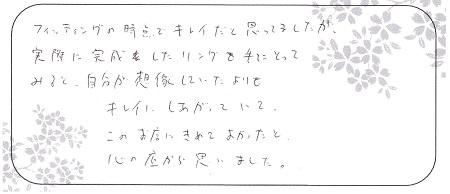 フィッティングの時点でキレイだと思ってましたが、
実際に完成をしたリングを手にとって
みると、自分が想像していたよりも
キレイにしあがっていて、
このお店にきめてよかったと、
心の底から思いました。